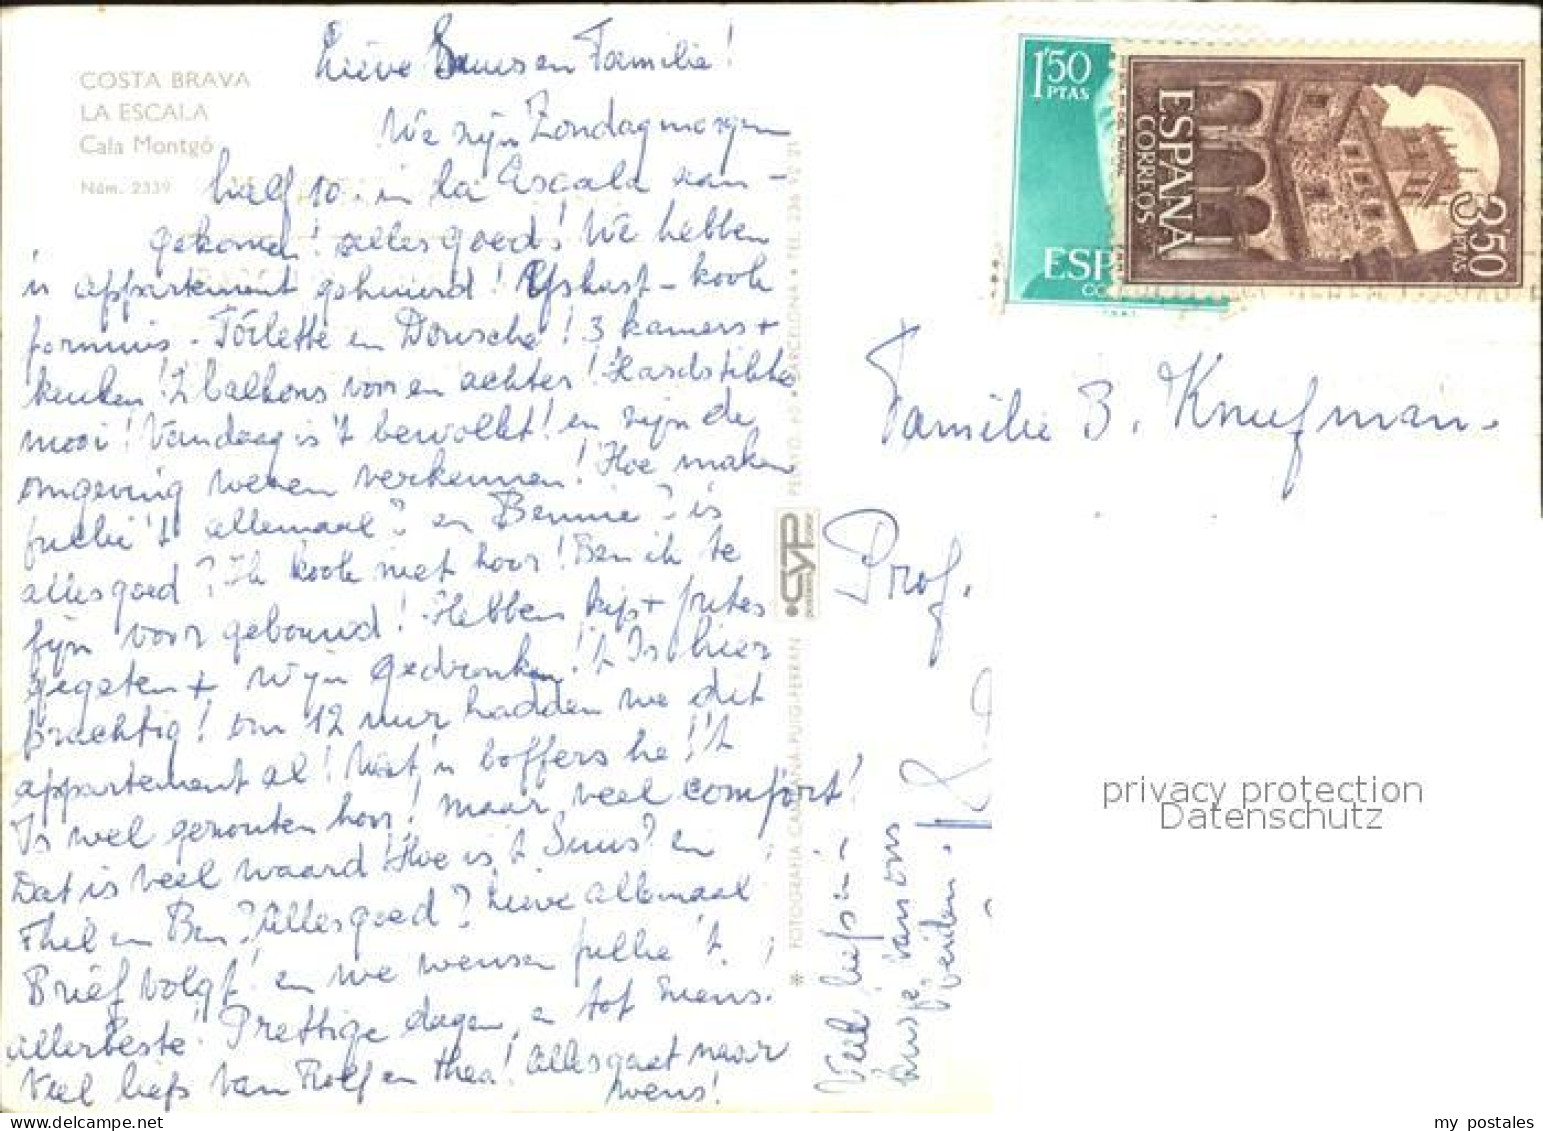 COSTA BRAVA
LA ESCALA
Cala Montgó
Núm. 2339
Lieve Suus en Familie!
We zijn Zondagmorgen
half 10 in La Escala aan-
gekomen! alles goed! We hebben
'n appartement gehuurd! Yskast - kook
fornuis - Toilette en Dousche! 3 kamers +
keuken! 2 balkons voor en achter! Hardstikke
mooi! Vandaag is 't bewolkt! en zijn de
omgeving wezen verkennen! Hoe maken
jullie 't allemaal? en Bennie? is
alles goed? Ik kook niet hoor! Ben ik te
fijn voor gebouwd! Hebben kip + frites
gegeten + wijn gedronken! 't Is hier
prachtig! om 12 uur hadden we dit
appartement al! Wat 'n boffers he! 't
Is wel gezouten hoor! maar veel comfort!
Dat is veel waard! Hoe is 't Suus? en
Thel en Ben? Alles goed? Lieve allemaal
Brief volgt! en we wensen jullie 't
allerbeste! Prettige dagen en tot ziens!
Veel liefs van Rolf en Thea! Alles gaat naar
wens!
Veel liefs
Suusje van ons
beiden.
FOTOGRAFIA CAMPAÑÁ-PUIG-FERRAN
CYP
BARCELONA • TEL. 236 90 21
1'50
PTAS
ESP
CO
ESPAÑA
CORREOS
3'50
PTAS
Familie B. Knufman.
Prof.
privacy protection
Datenschutz
my postales